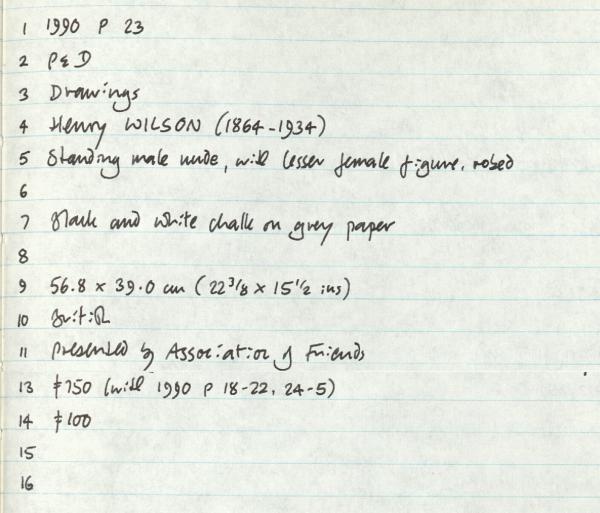 1 1990 P 23
2 P&D
3 Drawings
4 Henry WILSON (1864-1934)
5 Standing male nude, with lesser female figure, robed
6
7 Black and white chalk on grey paper
8
9 56.8 x 39.0 cm (22 3/8 x 15 1/2 ins)
10 British
11 Presented by Association of Friends
13 £750 (with 1990 P 18-22, 24-5)
14 £100
15
16